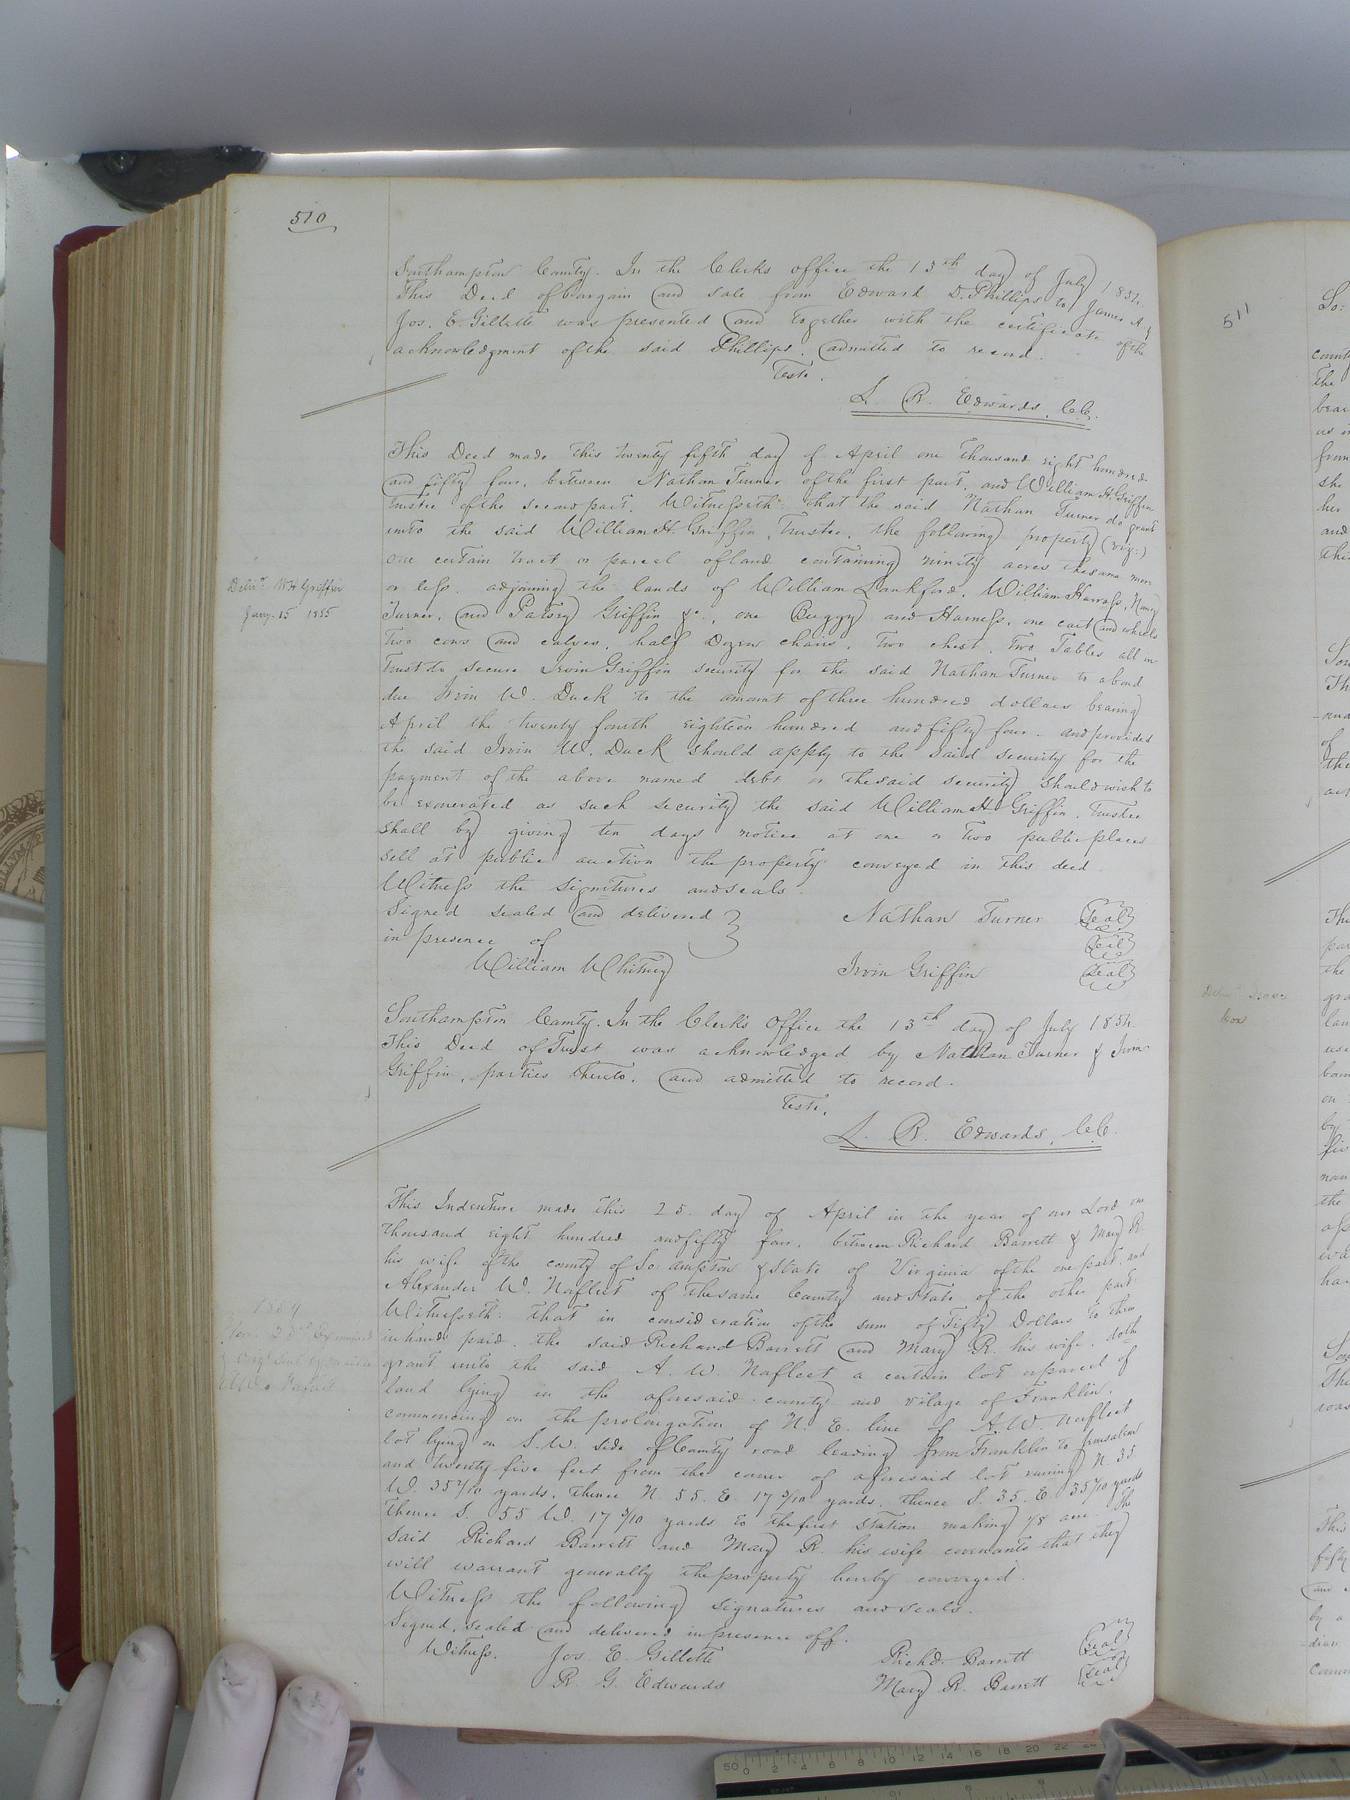 510
Southampton County. In the Clerks office the 13th day of July 1854.
This Deed of bargain and sale from Edward D. Phillips to James A. &
Jos. E. Gillette was presented and together with the certificate of the
acknowledgment of the said Phillips. admitted to record.
Teste.
L. R. Edwards, C.C.
This Deed made this twenty fifth day of April one thousand eight hundred
and fifty four, between Nathan Turner of the first part, and William H. Griffin
trustee of the second part. Witnesseth: that the said Nathan Turner do grant
unto the said William H. Griffin, trustee, the following property (viz:)
one certain tract or parcel of land containing ninety acres the same more
or less. adjoining the lands of William Lankford, William Harrass, Nancy
Turner, and Patsey Griffin &c., one Buggy and Harness, one cart and wheels
two cows and calves, half dozen chairs, two chest, two Tables all in
trust to secure Irvin Griffin security for the said Nathan Turner to a bond
due Irvin W. Duck to the amount of three hundred dollars bearing
April the twenty fourth eighteen hundred and fifty four. and provided
the said Irvin W. Duck should apply to the said security for the
payment of the above named debt or the said security should wish to
be exonerated as such security the said William H. Griffin, trustee
shall by giving ten days notice at one or two public places
sell at public auction the property conveyed in this deed.
Witness the signitures and seals.
Signed sealed and delivered } Nathan Turner (Seal)
in presence of (Seal)
William Whitney Irvin Griffin (Seal)
Deliv.d W H Griffin
Jany. 15 1855
Southampton County. In the Clerk's Office the 13th day of July 1854.
This Deed of Trust was acknowledged by Nathan Turner & Irvin
Griffin, parties thereto, and admitted to record.
Teste,
L. R. Edwards, C.C.
This Indenture made this 25. day of April in the year of our Lord one
thousand eight hundred and fifty four, between Richard Barrett & Mary R.
his wife of the county of So:ampton & State of Virginia of the one part, and
Alexander W. Naflect of the same County and State of the other part.
Witnesseth: that in consideration of the sum of Fifty Dollars to them
in hand paid. the said Richard Barrett and Mary R. his wife. doth
grant unto the said A. W. Naflect a certain lot or parcel of
land lying in the aforesaid county and vilage of Franklin.
commencing on the prolongation of N. E. line of A. W. Naflect
lot lying on S. W. side of County road leading from Franklin to Jerusalem
and twenty five feet from the corner of aforesaid lot runing N. 35
W. yards, thence N. 55. E. yards, thence S. 35. E. yards
thence S. 55 W. yards to the first station making 1/8 acre. The
said Richard Barrett and Mary R. his wife covenants that they
will warrant generally the property hereby conveyed.
Witness the following signatures and seals.
Signed, sealed and delivered in presence off.
Witness. Jos. E. Gillette Richd. Barrett (Seal)
R. G. Edwards Mary R. Barrett (Seal)
511